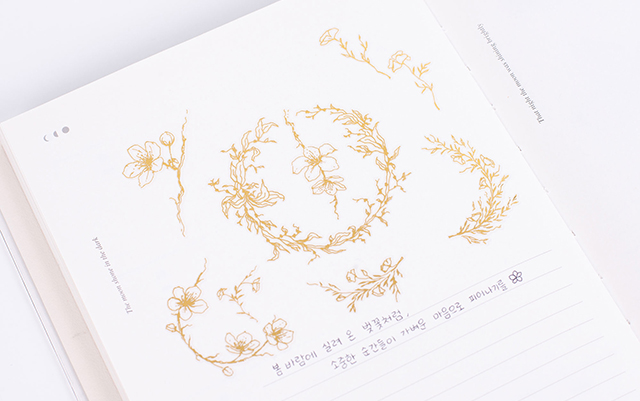 That night the moon was shining brightly
The moon shone in the dark
봄바람에 실려 온 벚꽃처럼,
소중한 순간들이 가벼운 마음으로 피어나기를